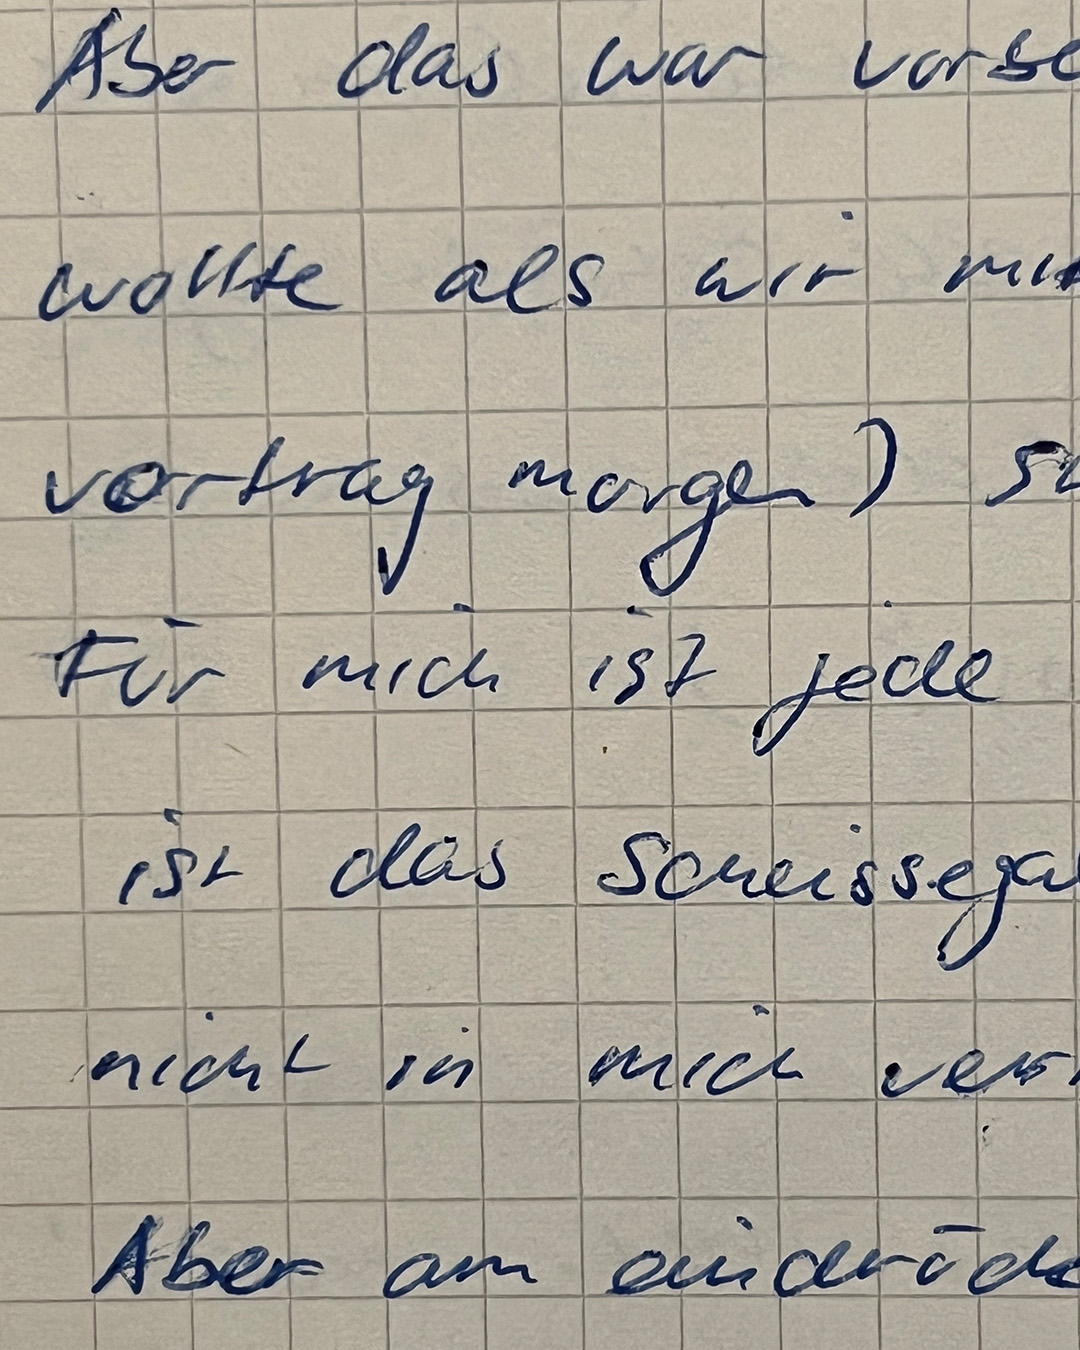 Aber das war vorbe
wollte als wir mit
vortrag morgen) Su
Für mich ist jede
ist das Scheissegal
nicht in mich ver
Aber am eindrücke